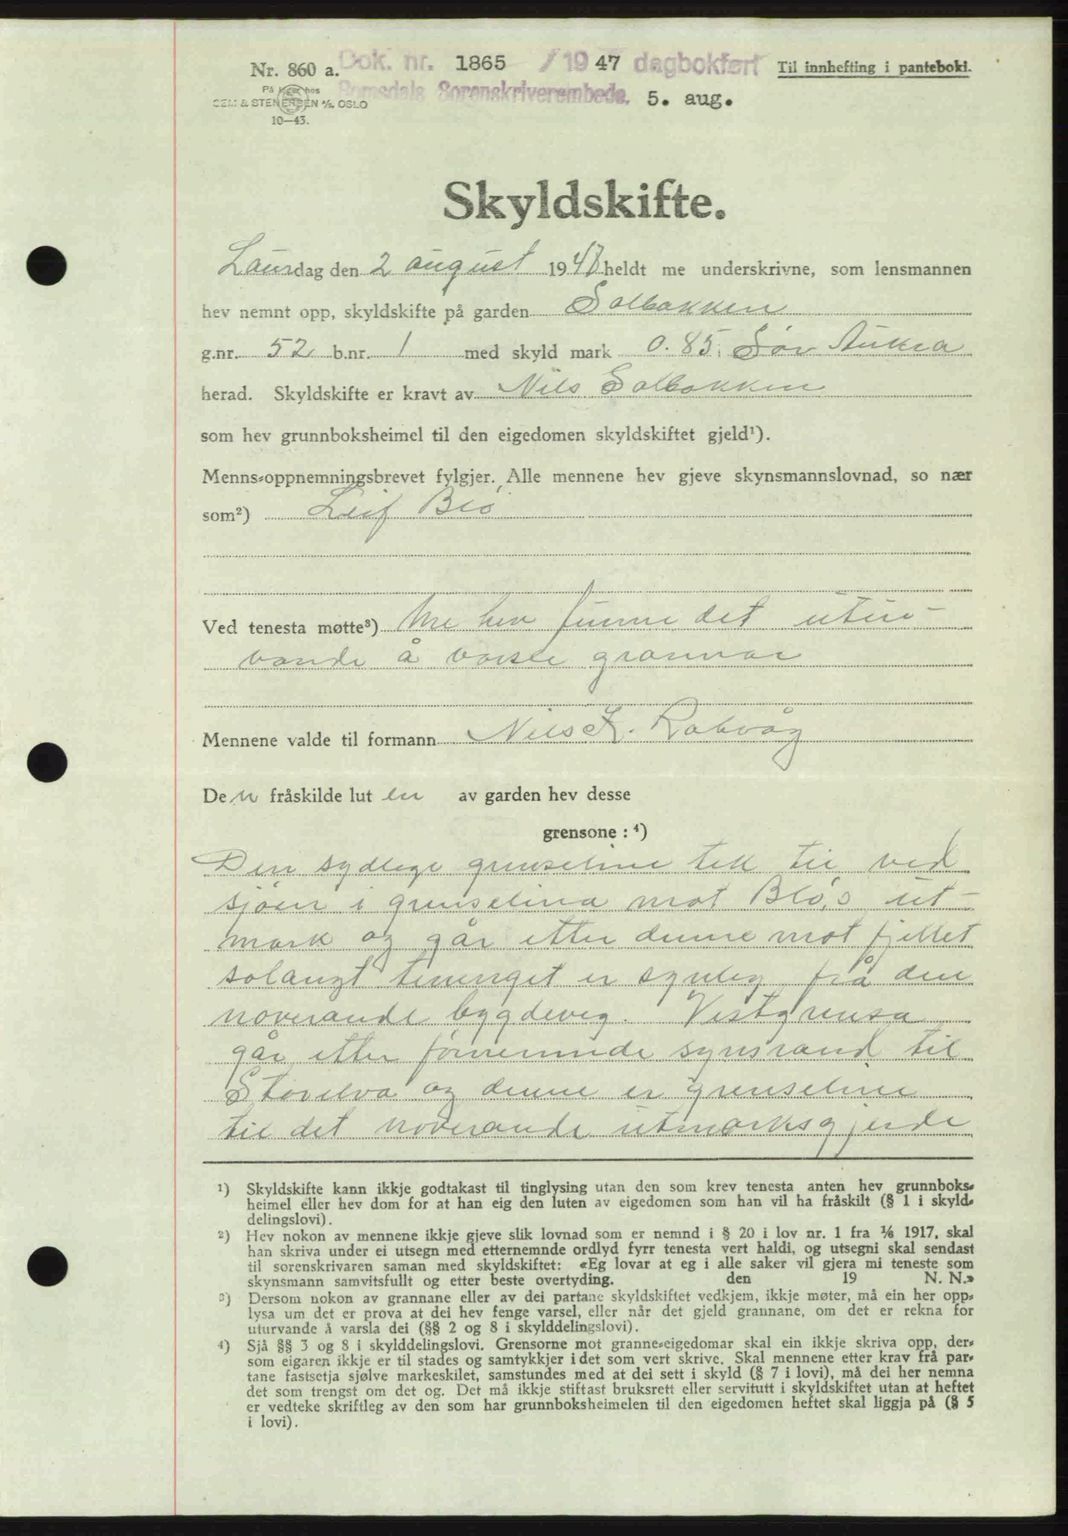 Nr. 860 a. Dok. nr. 1865 / 1947 dagbokført Til innhefting i panteboki.
På lager hos Romsdals Sorenskriverembede. 5. aug.
SEM & STENERSEN A/S. OSLO
10—43.
Skyldskifte.
Laurdag den 2 august 1947 heldt me underskrivne, som lensmannen
hev nemnt opp, skyldskifte på garden Solbakken
g.nr. 52 b.nr. 1 med skyld mark 0.85. Sør Aukra
herad. Skyldskifte er kravt av Nils Solbakken
som hev grunnboksheimel til den eigedomen skyldskiftet gjeld¹).
Menns-oppnemningsbrevet fylgjer. Alle mennene hev gjeve skynsmannslovnad, so nær
som²) Leif Blø
Ved tenesta møtte³) Me hev funne det uturvande
vande å varsla grannar
Mennene valde til formann Nils K. Rakvåg
Den fråskilde luten av garden hev desse
grensone : ⁴)
Den sydlege grenseline tek til ved
sjøen i grenselina mot Blø,s ut-
mark og går etter denne mot fjellet
solangt terrenget er synleg frå den
noverande bygdeveg. Vestgrensa
går etter førnemnde synsrand til
Storelva og denne er grenseline
til det noverande utmarksgjerde
¹) Skyldskifte kann ikkje godtakast til tinglysing utan den som krev tenesta anten hev grunnboks-
heimel eller hev dom for at han eig den luten av eigedomen som han vil ha fråskilt (§ 1 i skyld-
delingslovi).
²) Hev nokon av mennene ikkje gjeve slik lovnad som er nemnd i § 20 i lov nr. 1 fra 1/6 1917, skal
han skriva under ei utsegn med etternemnde ordlyd fyrr tenesta vert haldi, og utsegni skal sendast
til sorenskrivaren saman med skyldskiftet: «Eg lovar at eg i alle saker vil gjera mi teneste som
skynsmann samvitsfullt og etter beste overtyding. den 19 N. N.»
³) Dersom nokon av grannane eller av dei partane skyldskiftet vedkjem, ikkje møter, må ein her opp-
lysa um det er prova at dei hev fenge varsel, eller når det gjeld grannane, om det er rekna for
uturvande å varsla dei (§§ 2 og 8 i skylddelingslovi).
⁴) Sjå §§ 3 og 8 i skylddelingslovi. Grensorne mot granne-eigedomar skal ein ikkje skriva opp, der-
som eigaren ikkje er til stades og samtykkjer i det som vert skrive. Skal mennene etter krav frå par-
tane fastsetja sjølve markeskilet, samstundes med at dei sett i skyld (§ 7 i lovi), må dei her nemna
det som trengst om det og. Det må ikkje stiftast bruksrett eller servitutt i skyldskiftet utan at heftet
er vedteke skriftleg av den som har grunnboksheimelen til den eigedomen heftet skal liggja på (§ 5
i lovi).